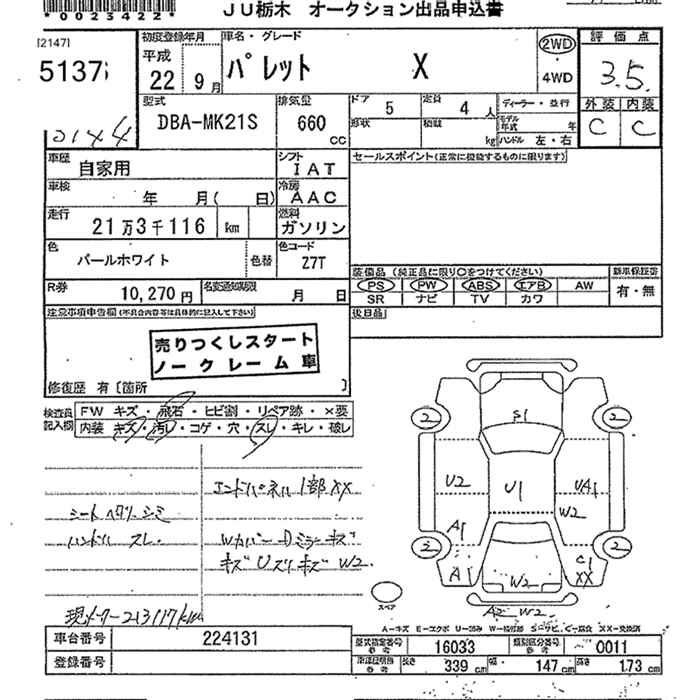 *0023422*
JU栃木 オークション出品申込書
[2147]
5137
初度登録年月
平成
22 9月
車名・グレード
パレット X
2WD
・
4WD
評価点
3.5
外装 内装
C C
型式
DBA-MK21S
排気量
660 CC
ドア 5
定員 4 人
ディーラー・並行
形状
積載 kg
モデル年式 年
ハンドル 左・右
車歴 自家用
シフト IAT
セールスポイント(正常に機能するものに限ります)
車検 年 月( 日)
冷房 AAC
走行 21万3千116 km
燃料 ガソリン
色 パールホワイト 色替
色コード Z7T
R券 10,270円
名変通知期限 月 日
装備品(純正品に限り○をつけてください)
PS PW ABS エアB AW
SR ナビ TV カワ
新車保証書
有・無
注意事項申告欄(不具合内容等は具体的に記入して下さい)
後日品
売りつくしスタート
ノークレーム車
修復歴 有〔箇所 〕
検査員記入欄
FW キズ・飛石・ヒビ割・リペア跡・×要
内装 キズ・汚レ・コゲ・穴・スレ・キレ・破レ
エンドパネル1部XX
シートヘタリ シミ
ハンドル スレ
WカバーDミラーキズ
キズ Uズリキズ W2
現メーター213117km
2 2
S1
U2 U1 UA1
W2
A1
2 2
A W2 C1
XX
A2 W2
スペア
A-キズ E-エクボ U-凹み W-補修跡 S-サビ C-腐食 XX-交換済
車台番号 224131
登録番号
型式指定番号 参考 16033
類別区分番号 参考 0011
長さ 339 cm 幅 147 cm 高さ 173 cm